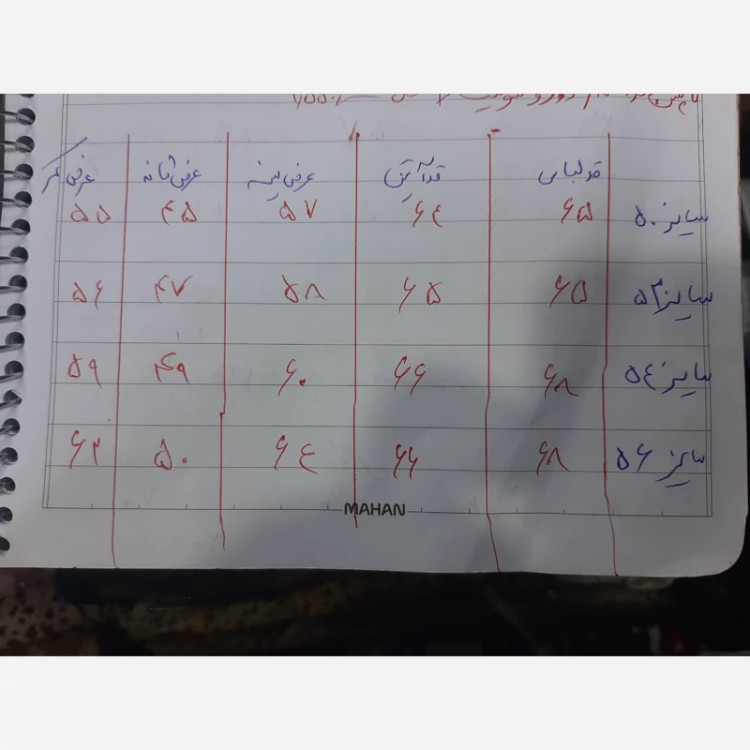 قد لباس قدآستین عرض سینه عرض شانه عرض کمر
سایز ۵۰ ۶۵ ۶۴ ۵۷ ۴۵ ۵۵
سایز ۵۲ ۶۵ ۶۵ ۵۸ ۴۷ ۵۶
سایز ۵۴ ۶۸ ۶۶ ۶۰ ۴۹ ۵۹
سایز ۵۶ ۶۸ ۶۶ ۶۴ ۵۰ ۶۲
MAHAN